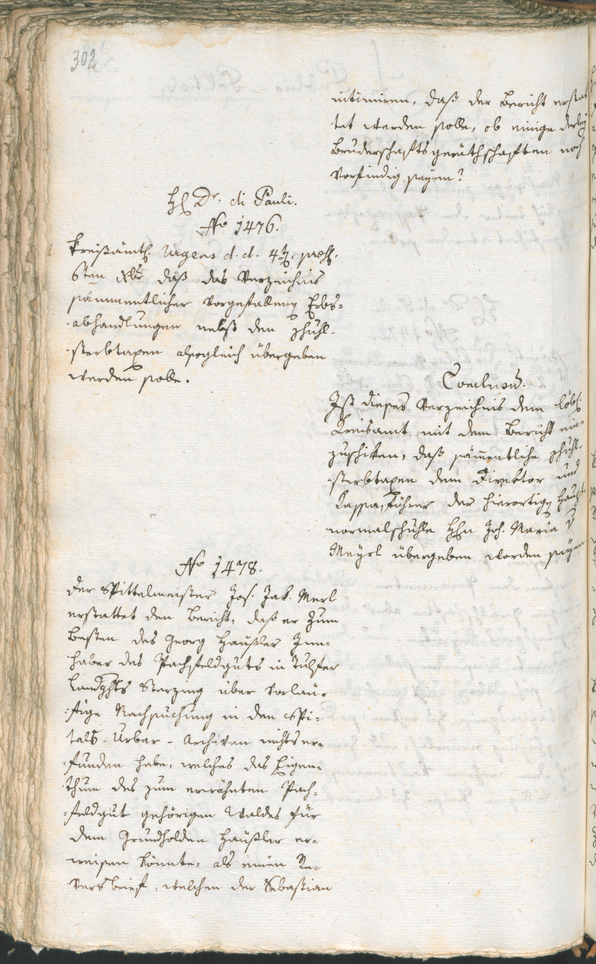 302
intimiren, daß der Bericht erstat
tet werden solle, ob einige derley
Bruderschaftsgeräthschaften noch
vorfindig seyen?
H. Dr. di Pauli.
No 1476.
Kreisämtl. Urgens d. d. 4t. pres.
6ten daß das Verzeichnis
sämmentlicher vorgefallenen Erbs-
abhandlungen nebst den Schuhl-
sterbtaxen alsogleich übergeben
werden solle.
Conclusum.
Ist dieses Verzeichnis dem löbl.
Kreisamt mit dem Bericht ein-
zuschiken, daß sämentliche Schuhl-
sterbtaxen dem Direktor und
Kassaführer der hierortigen Haupt
normalschuhle Hhn Joh. Maria v
Meyrl übergeben worden seyen
No 1478.
Der Spittelmeister Jos. Jak. Merl
erstattet den Bericht, daß er zum
Besten des Georg Häußler Inn-
haber des Pachsfeldguts in Tulfer
Landghts Sterzing über vorläu-
fige Nachsuchung in den Spi-
tals-Urbar-Archiven nichts er-
funden habe, welches das Eigen-
thum des zum errähnten Pach-
feldgut gehörigen Waldes für
dem Grundholden Häußler er-
weisen könnte, als einen Re-
versbrief, welchen der Sebastian